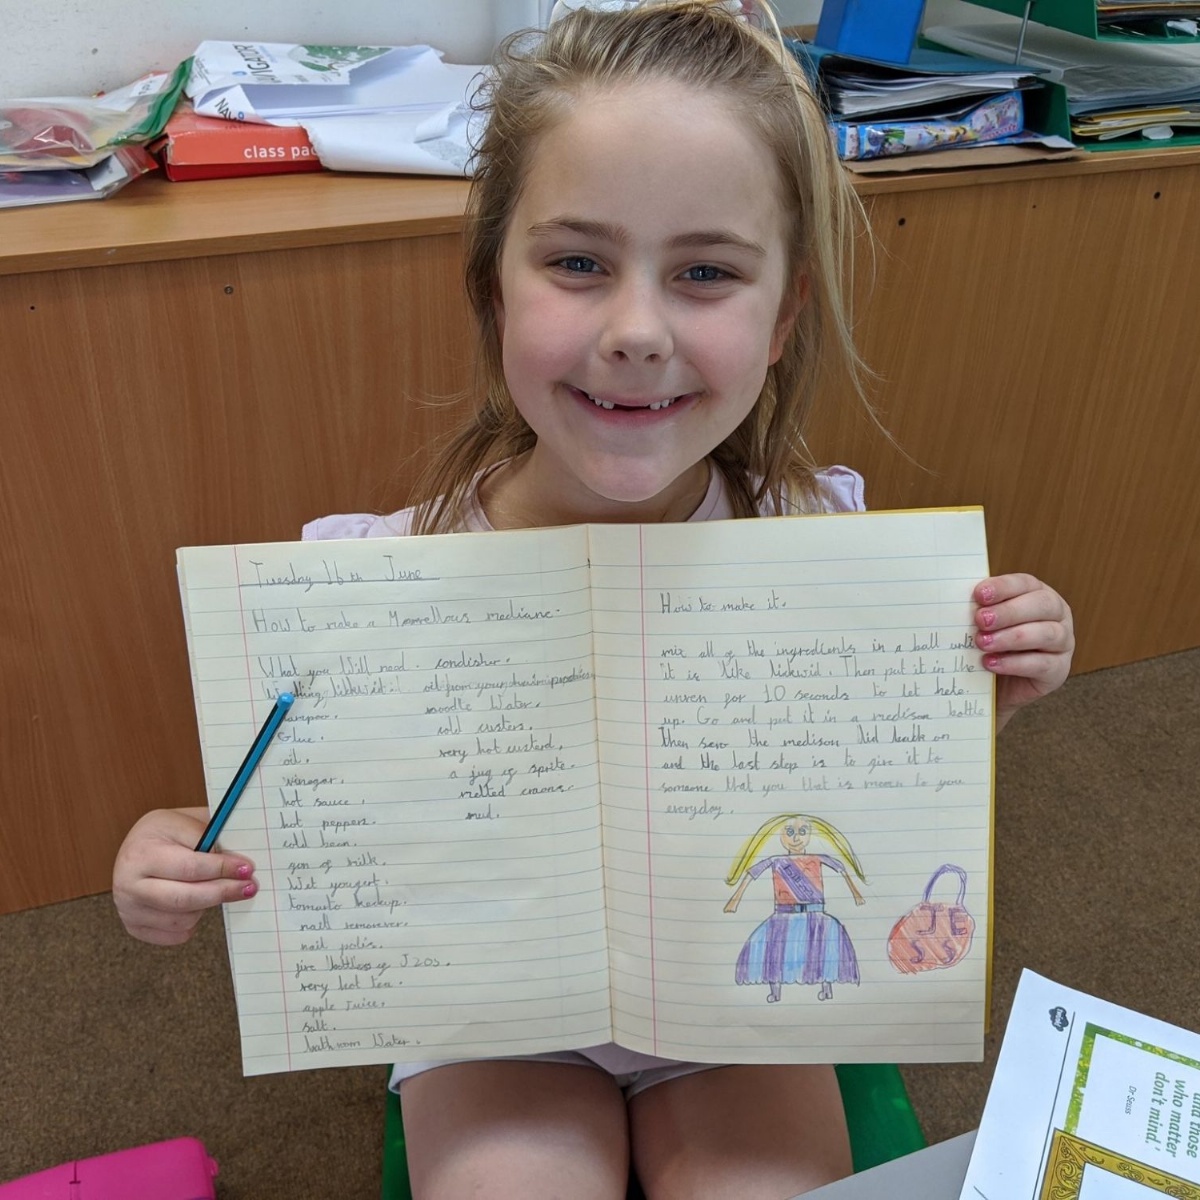 class pac
Tuesday 16th June
How to make a Marvellous mediane.
What you Will need.
Washing
hampoo.
Glue.
oil.
vinegar.
hot sauce.
hot peppers.
cold bean.
of milk.
Wet yougert.
tomauto keckup.
nail
nail polis.
five bottles of J2Os.
very hot tea.
apple juice.
salt.
bathroom Water.
condisher.
oil from your hair
noodle Water.
cold custers.
very hot custard.
a jug of sprite.
melted craons.
mud.
How to make it.
mix all of the ingredients in a ball until
it is like lickwid. Then put it in the
unven for 10 seconds to let hete
up. Go and put it in a medison bottle
Then scro the medison lid back on
and the last step is to give it to
someone that you that is mean to you
everyday.
JE
SS
and those
who matter
don't mind.'
Dr Seuss